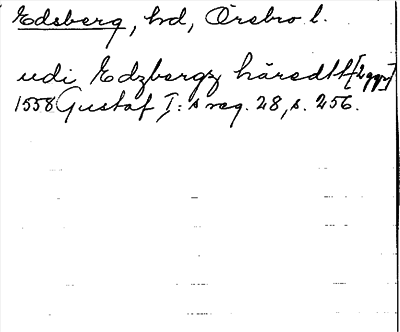 Edsberg, hd, Örebro l.
udi Edzbergz häredtt [2 ggr]
1558 Gustaf I:s reg. 28, s. 256.